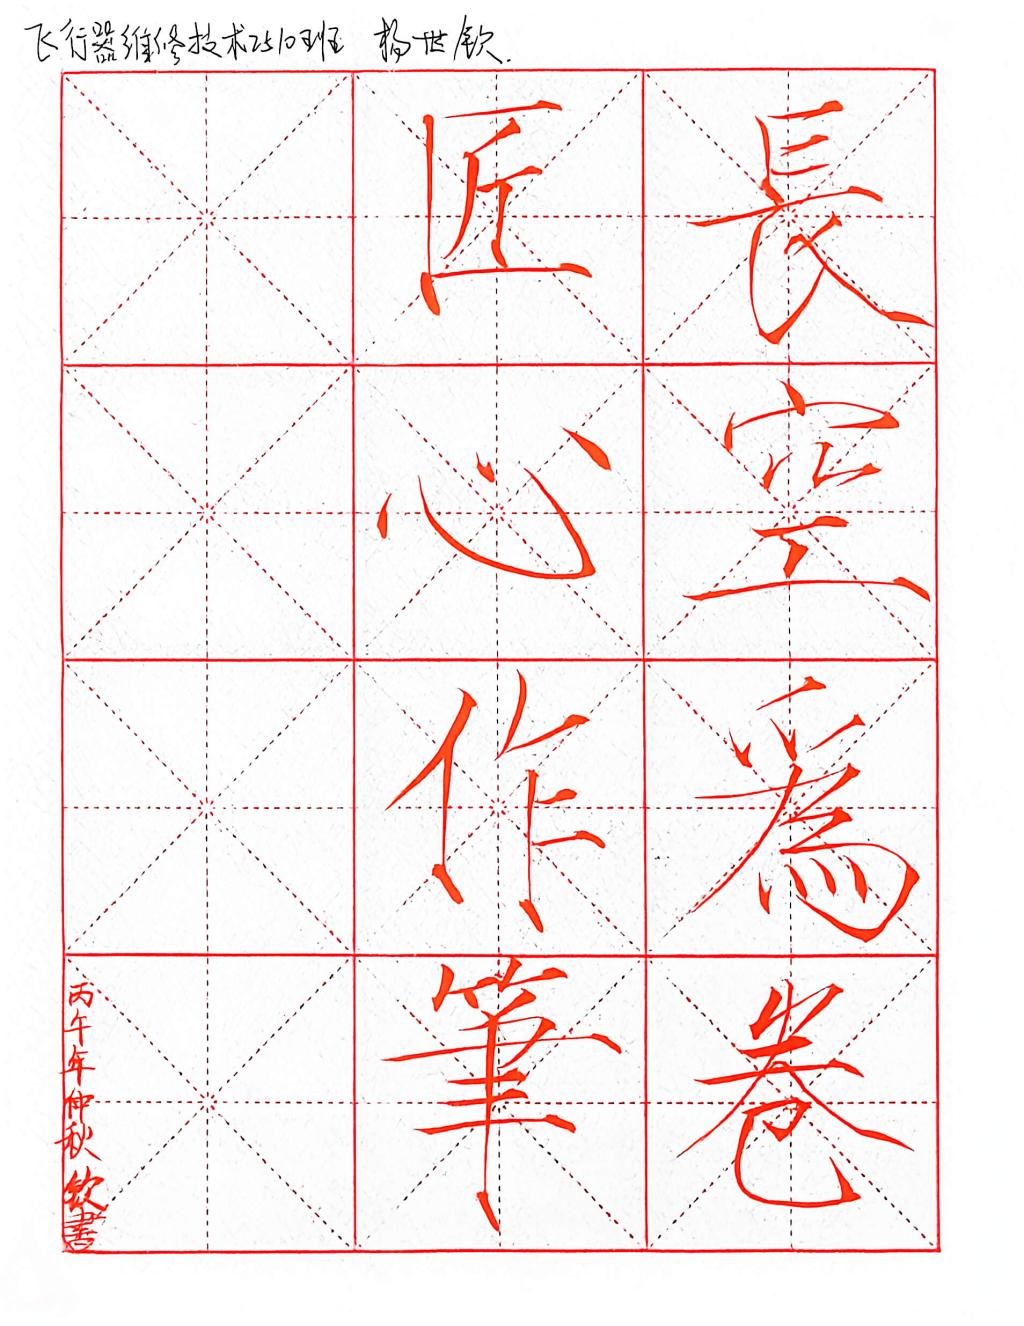 飞行器维修技术2510班 杨世钦.
長空為卷
匠心作筆
丙午年仲秋 钦書